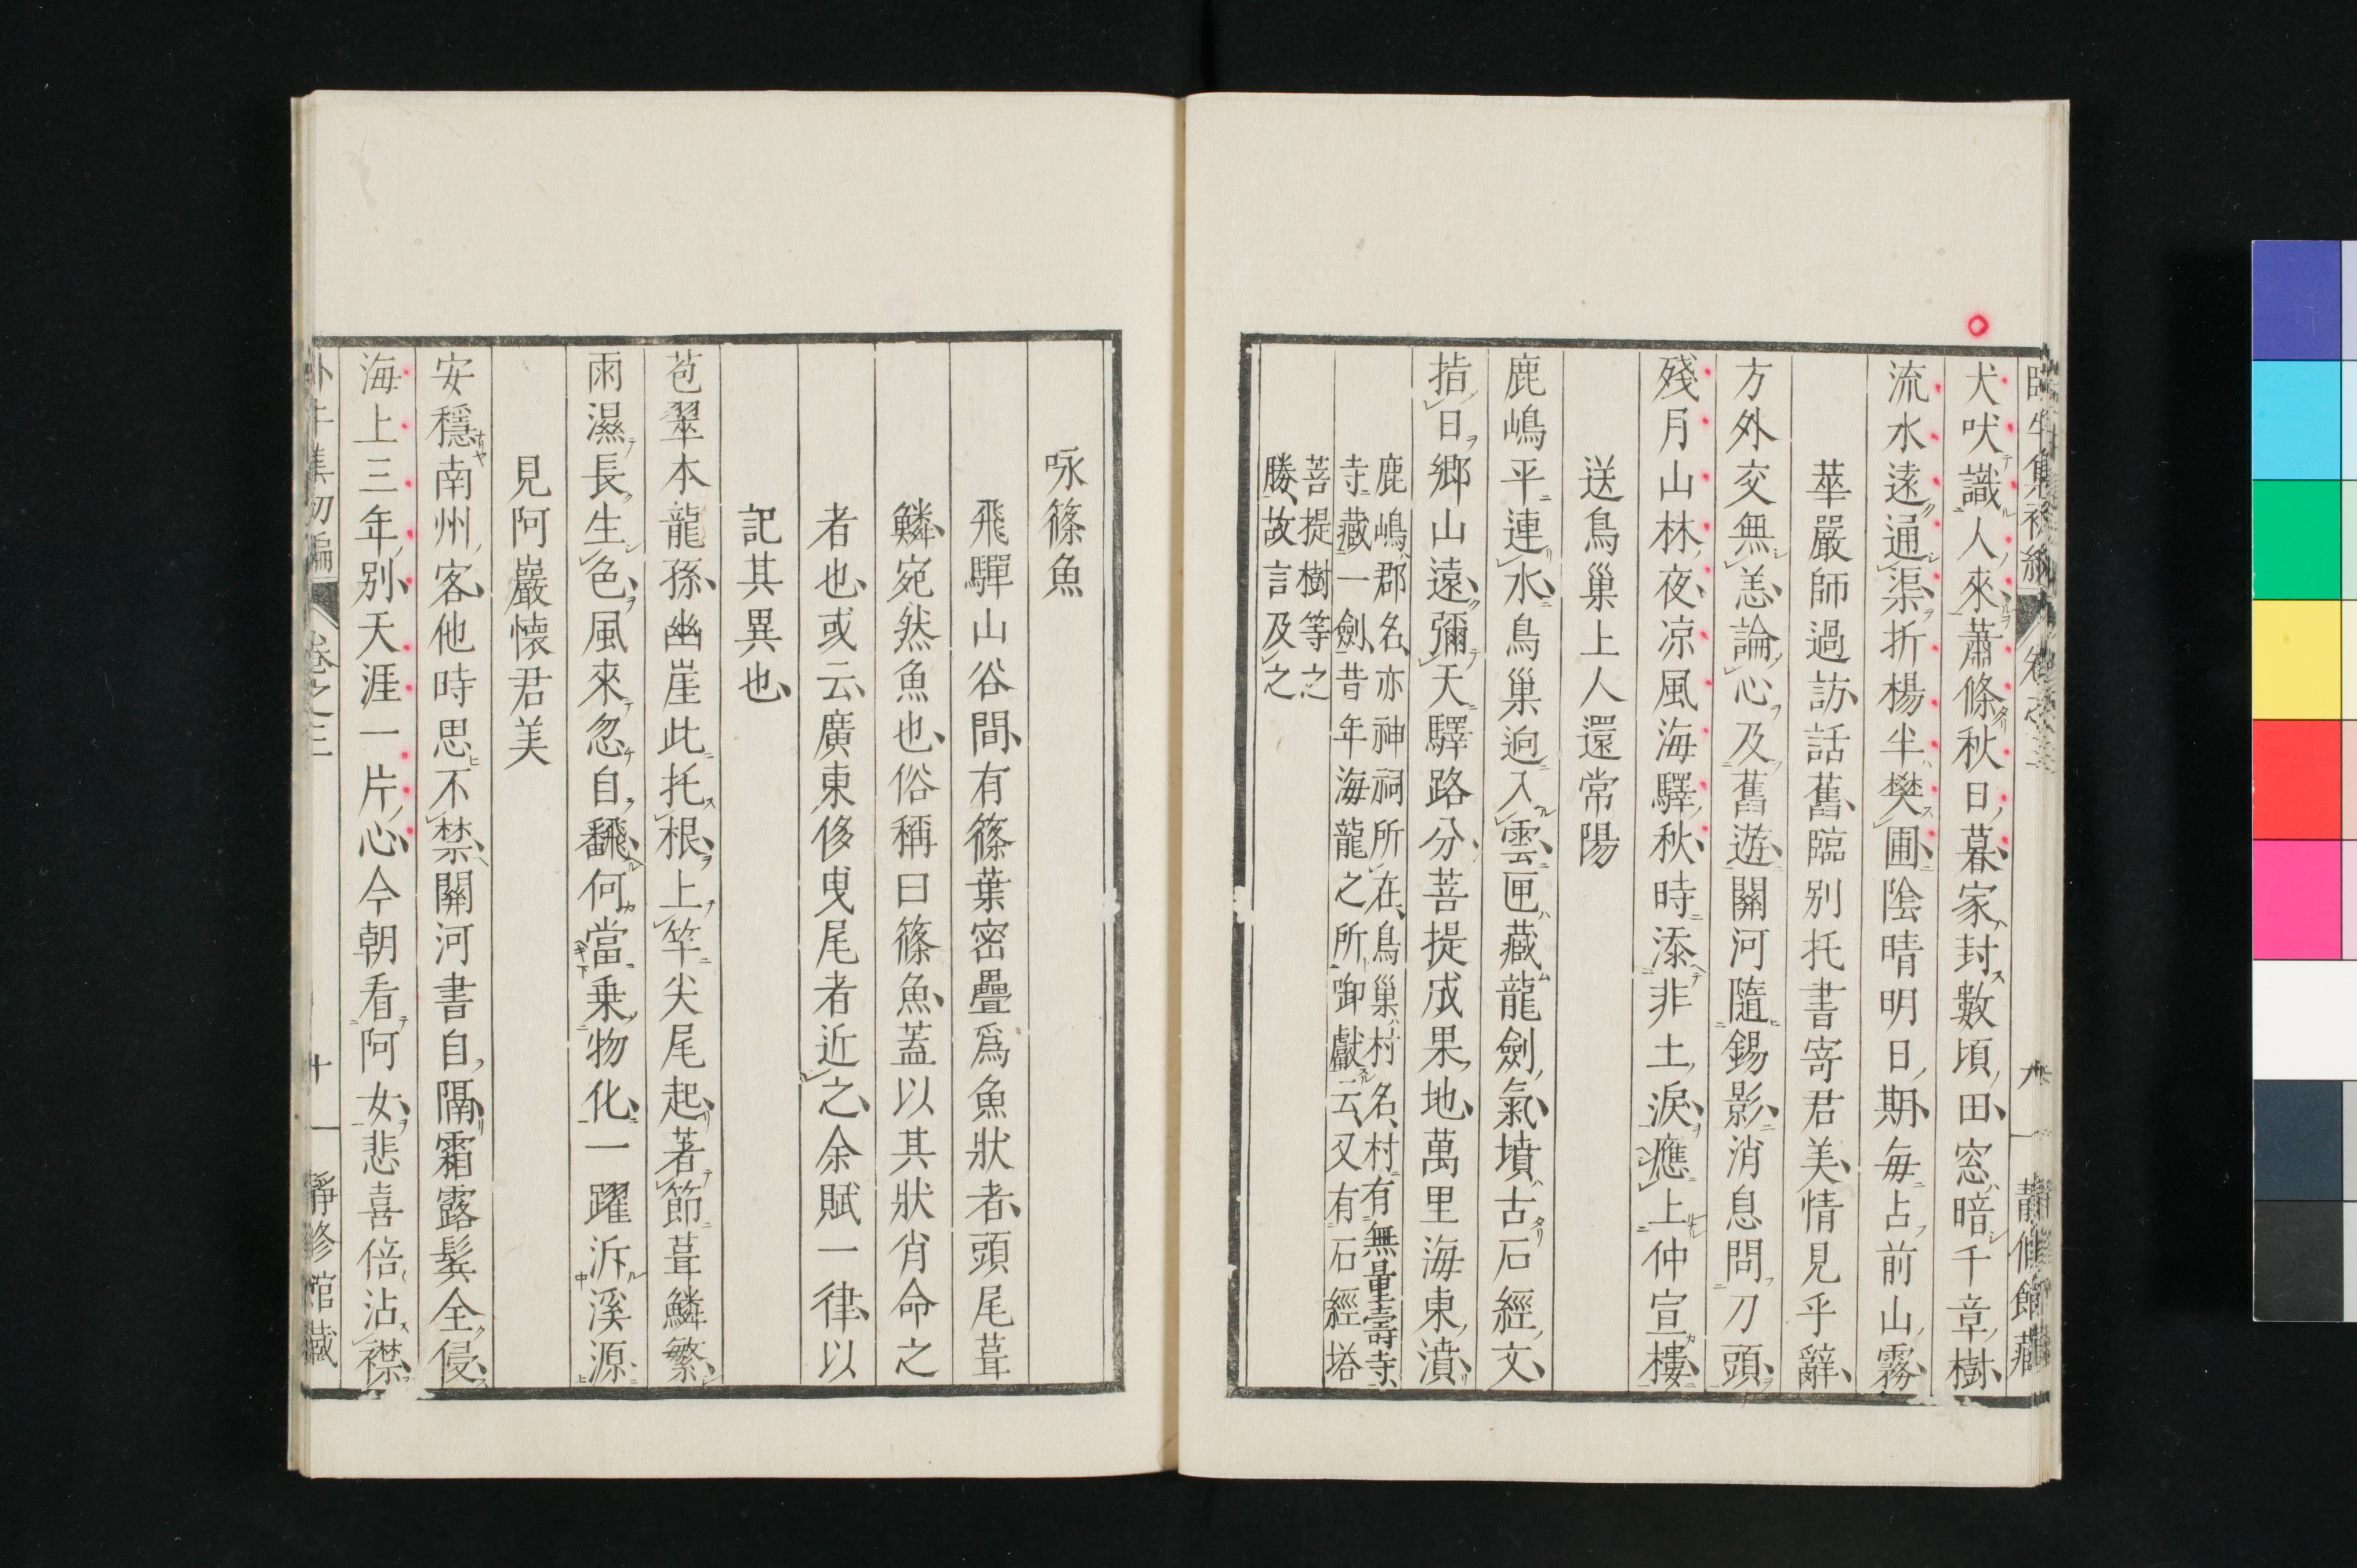 犬吠識人來蕭條秋日暮家封數頃田窓暗千章樹
流水遠通渠折楊半樊圃陰晴明日期每占前山霧
華嚴師過訪話舊臨別托書寄君美情見乎辭
方外交無恙論心及舊遊關河隨錫影消息問刀頭
殘月山林夜凉風海驛秋時添非土淚應上仲宣樓
送鳥巢上人還常陽
鹿嶋平連水鳥巢逈入雲匣藏龍劍氣墳古石經文
指日鄉山遠彌天驛路分菩提成果地萬里海東濆
鹿嶋郡名亦神祠所在鳥巢村名村有無量壽寺
寺藏一劍昔年海龍之所啣獻云又有石經塔
菩提樹等之
勝故言及之
咏篠魚
飛驒山谷間有篠葉密疊爲魚狀者頭尾葺
鱗宛然魚也俗稱曰篠魚蓋以其狀肖命之
者也或云廣東侈曳尾者近之余賦一律以
記其異也
苞翠本龍孫幽崖此托根上竿尖尾起著節葺鱗繁
雨濕長生色風來忽自飜何當乗物化一躍泝溪源
見阿巖懷君美
安穩南州客他時思不禁關河書自隔霜露鬂全侵
海上三年別天涯一片心今朝看阿女悲喜倍沾襟
卷之三
十一
靜修館藏